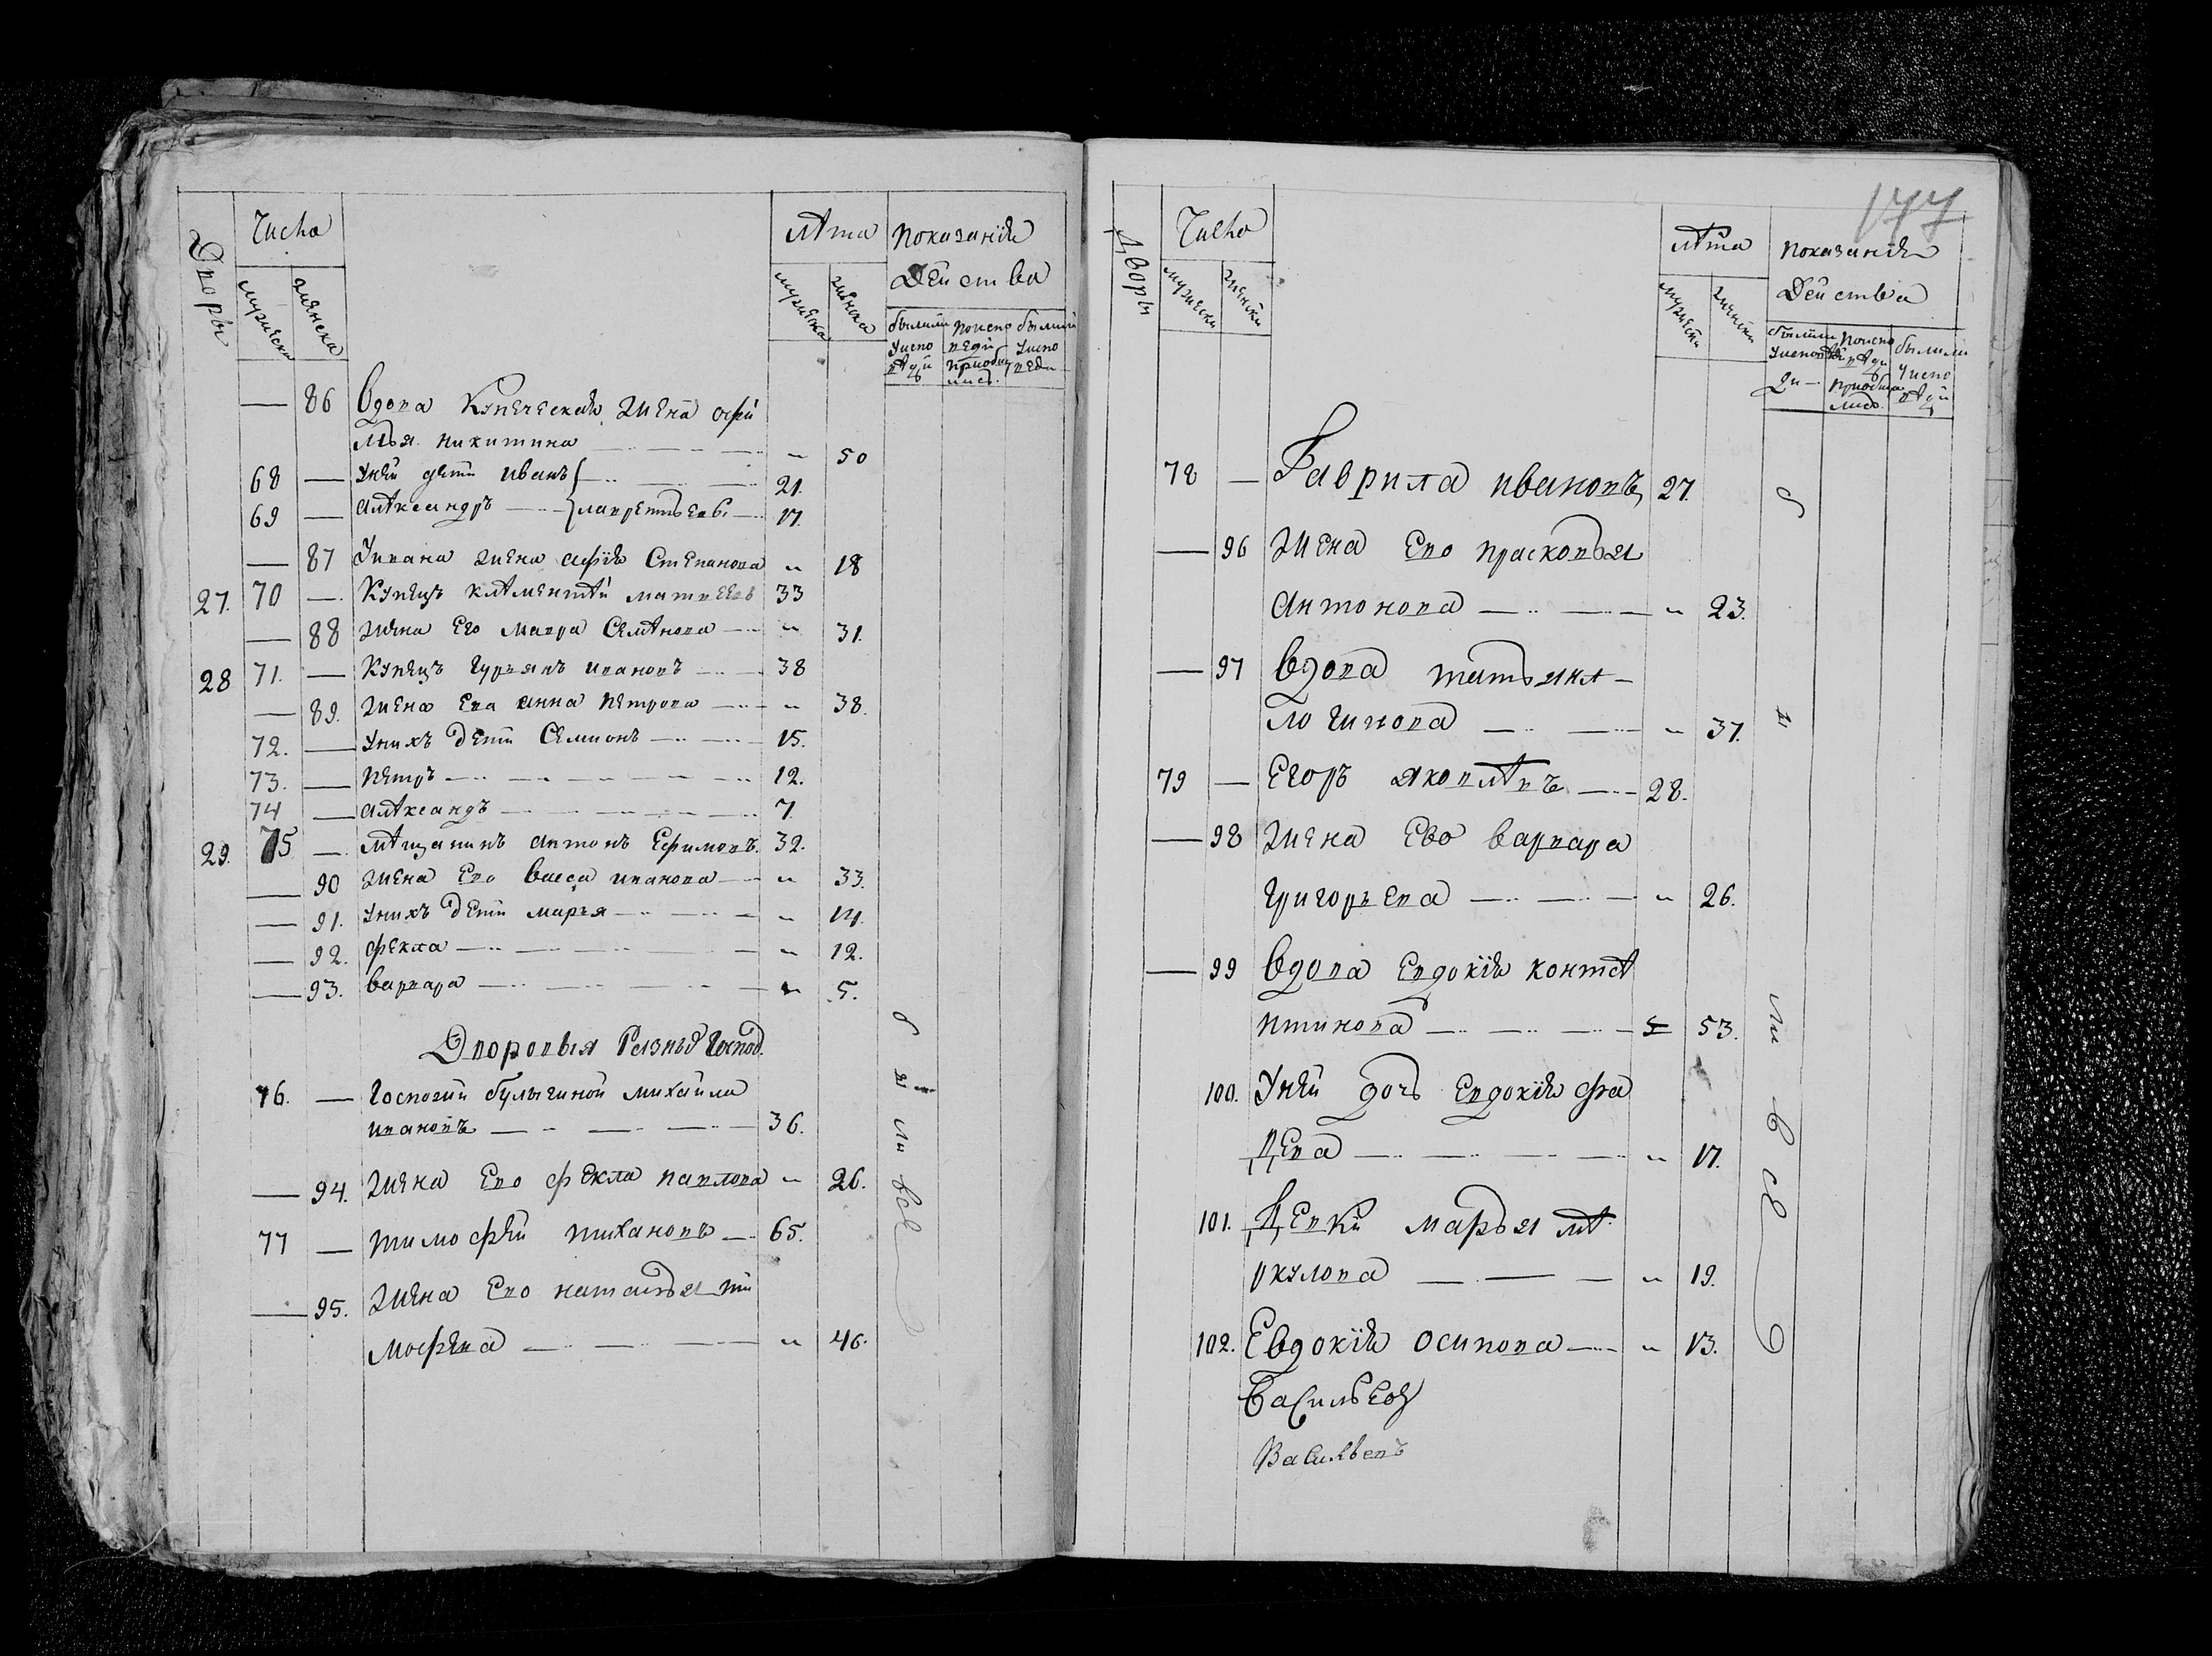 Дворы
Число
мужеска
женска
лѣта
мужеска
женска
показания
Действа
86 Вдова Купеческая жена офи
мья никитина — " 50
68 — Уней дети иванъ — 21.
69 — алѣксандръ — } лаврентьевы — 17.
— 87 Уивана жена софия Степанова " 18
27. 70 — Купецъ клѣментѣй матвеевъ 33
— 88 жена Его мавра Семѣнова — " 31.
28 71. — Купецъ Гурьянъ ивановъ — 38
— 89. жена Ево анна петрова — " 38.
72. — Унихъ дети Семионъ — 15.
73. — петръ — 12.
74 — алѣксандъ — 7
29. 75 — мѣщанинъ антонъ Ефимовъ. 32.
— 90 жена Ево васса иванова — " 33.
— 91. Унихъ дети марья — " 14.
— 92. фекла — " 12.
— 93. варвара — " 5.
Дворовыя Разныхъ Господ.
76. — Госпожи булыгиной михайла
ивановъ — 36.
— 94. жена Ево фекла павлова " 26.
77 — тимофей тихановъ — 65.
— 95. жена Ево наталья ти
мофева — " 46.
были все
177
Дворы
Число
мужески
женски
лѣта
мужески
женски
показания
Действа
78 — Гаврила ивановъ 27.
— 96 жена Ево прасковья
антонова — " 23.
— 97 Вдова татьяна
логинова — " 37.
79 — Егоръ яковлѣвъ — 28.
— 98 жена Ево варвара
григорьева — " 26.
— 99 Вдова Евдокия контѣ
нтинова — 53.
100. Уней дочь Евдокия фа
дева — " 17.
101. Девки марья
окулова — " 19.
102. Евдокия осипова — " 13.
были все
Васильевъ
Васильевъ